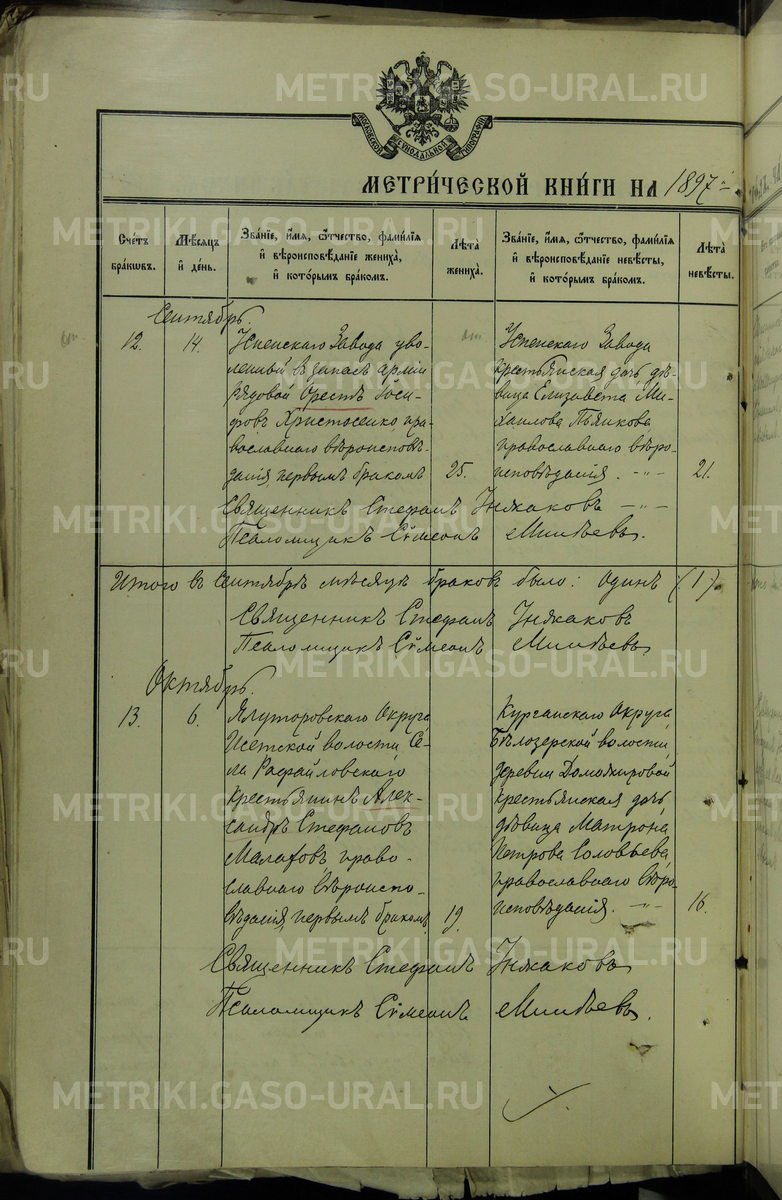 МОСКОВСКОЙ СѴНОДАЛЬНОЙ ТИПОГРАФІИ
МЕТРИ́ЧЕСКОЙ КНИ́ГИ НА 1897 г.
Сче́тъ бра́кѡвъ.
Мѣ́сѧцъ и҆ де́нь.
Зва́нїе, и҆́мѧ, ѻ҆́тчество, фами́лїѧ и҆ вѣроисповѣ́данїе жениха̀, и҆ кото́рымъ бра́комъ.
Лѣ́та жениха̀.
Зва́нїе, и҆́мѧ, ѻ҆́тчество, фами́лїѧ и҆ вѣроисповѣ́данїе невѣ́сты, и҆ кото́рымъ бра́комъ.
Лѣ́та невѣ́сты.
Сентябрь.
12. 14.
Успенскаго Завода уво-
ленный въ запасъ арміи
рядовой Орестъ Іоси-
фовъ Христосенко, пра-
вославнаго вѣроисповѣ-
данія, первымъ бракомъ
25.
Успенскаго Завода
крестьянская дочь дѣ-
вица Елизавета Ми-
хаилова Пьянкова,
православнаго вѣро-
исповѣданія. -"-
21.
Священникъ Стефанъ Инякаковъ -"-
Псаломщикъ Сѵмеонъ Минѣевъ.
Итого въ Сентябрѣ мѣсяцѣ браковъ было: одинъ (1).
Священникъ Стефанъ
Псаломщикъ Сѵмеонъ Минѣевъ
Октябрь.
13. 6.
Ялуторовскаго Округа
Исетской волости Се-
ла Рафайловскаго
крестьянинъ Алек-
сандръ Стефановъ
Малафовъ право-
славнаго вѣроиспо-
вѣданія, первымъ бракомъ.
19.
Курганскаго Округа
Бѣлозерской волости,
деревни Доможировой
крестьянская дочь
дѣвица Матрона
Петрова Соловьева,
православнаго вѣро-
исповѣданія. -"-
16.
Священникъ Стефанъ
Псаломщикъ Сѵмеонъ Минѣевъ.
METRIKI.GASO-URAL.RU